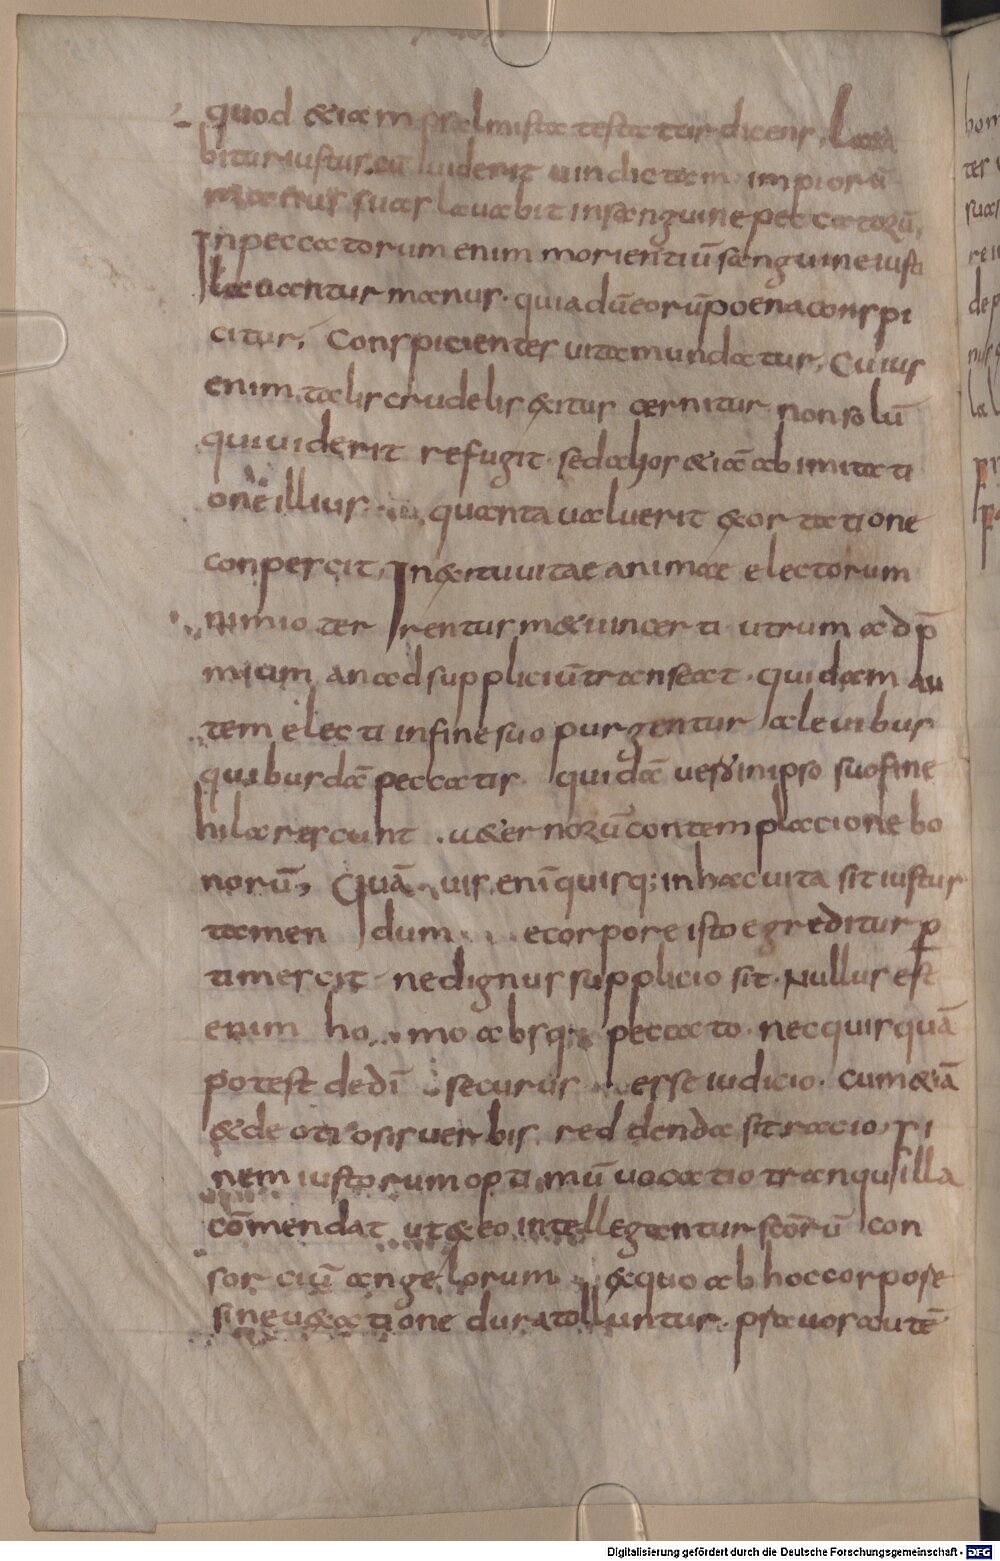 quod &iam psalmista testatur dicens, Laeta
bitur iustus cu uiderit uindictam impiorū
manus suas lauabit in sanguine peccatorū,
In peccatorum enim morientiū sanguine iusti
lauantur manus. quia dū eorū poena conspi
citur, Conspicientes uita mundatur, Cuius
enim talis crudelis exitus cernitur non solū
qui uiderit refugit. sed alios &iā ab imitati
onē illius quanta ualuerit exortatione
conpercit, In exitu uitae animae electorum
nimio terrentur m&u incerti utrum ad p̄
mium an ad suppliciū transeat. quidam au
tem electi in fine suo purgentur a leuibus
quibusdā peccatis quidā uero in ipso suo fine
hilarescunt . u&ernorū contemplacione bo
norū, Quā uis enī quisq; in hac uita sit iustus
tamen dum e corpore isto egreditur p
timescit ne dignus supplicio sit. Nullus est
enim homo absq; peccato. nec quisquā
potest de dī securus esse iudicio. cum &iā
& de otiosis uerbis reddenda sit racio, Fi
nem iustorum optimū uocatio tranquilla
cōmendat ut & eo intellegantur scōrū con
sorciū angelorum ex quo ab hoc corpore
sine uexatione dura tolluntur. prauos autē
Digitalisierung gefördert durch die Deutsche Forschungsgemeinschaft - DFG